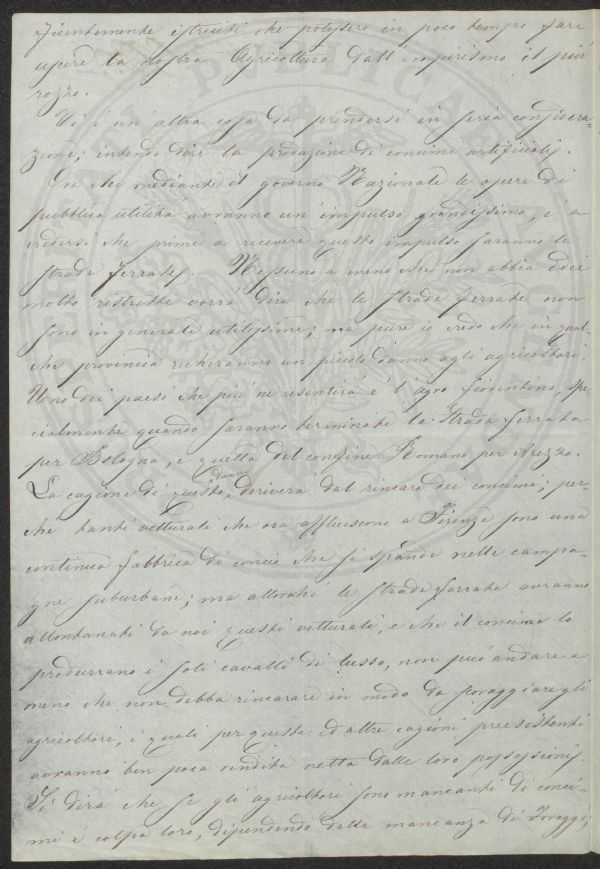 ficientemente istruiti che potessero in poco tempo fare
uscire la nostra Agricoltura dall'empirismo il più
rozzo.
Vi è un'altra cosa da prendersi in seria considera-
zione; intendo dire la produzione di concimi artificiali.
Ora che mediante il governo Nazionale le opere di
pubblica utilità avranno un'impulso grandissimo, è a
credersi che prime a ricevere questo impulso saranno le
strade ferrate. Nessuno a meno che non abbia idee
molto ristrette vorrà dire che le strade ferrate non
sono in generale utilissime; ma pure io credo che in qual-
che provincia recheranno un piccolo danno agli agricoltori.
Uno dei paesi che più ne risentirà è l'agro fiorentino, spe-
cialmente quando saranno terminate la Strada ferrata
per Bologna, e quella del confine Romano per Arezzo.
La cagione di questo danno deriverà dal rincaro dei concimi; per-
chè tanti vetturali che ora affluiscono a Firenze sono una
continua fabbrica di concio che si spande nelle campa-
gne suburbane; ma allorchè le strade ferrate avranno
allontanati da noi questi vetturali, e che il concime lo
produrrano i soli cavalli di lusso, non può andare a
meno che non debba rincarare in modo da scoraggiare gli
agricoltori, i quali per questa ed altre cagioni preesistenti
avranno ben poca rendita netta dalle loro possessioni.
Si dirà che se gli agricoltori sono mancanti di conci-
mi è colpa loro, dipendendo dalla mancanza di foraggi;